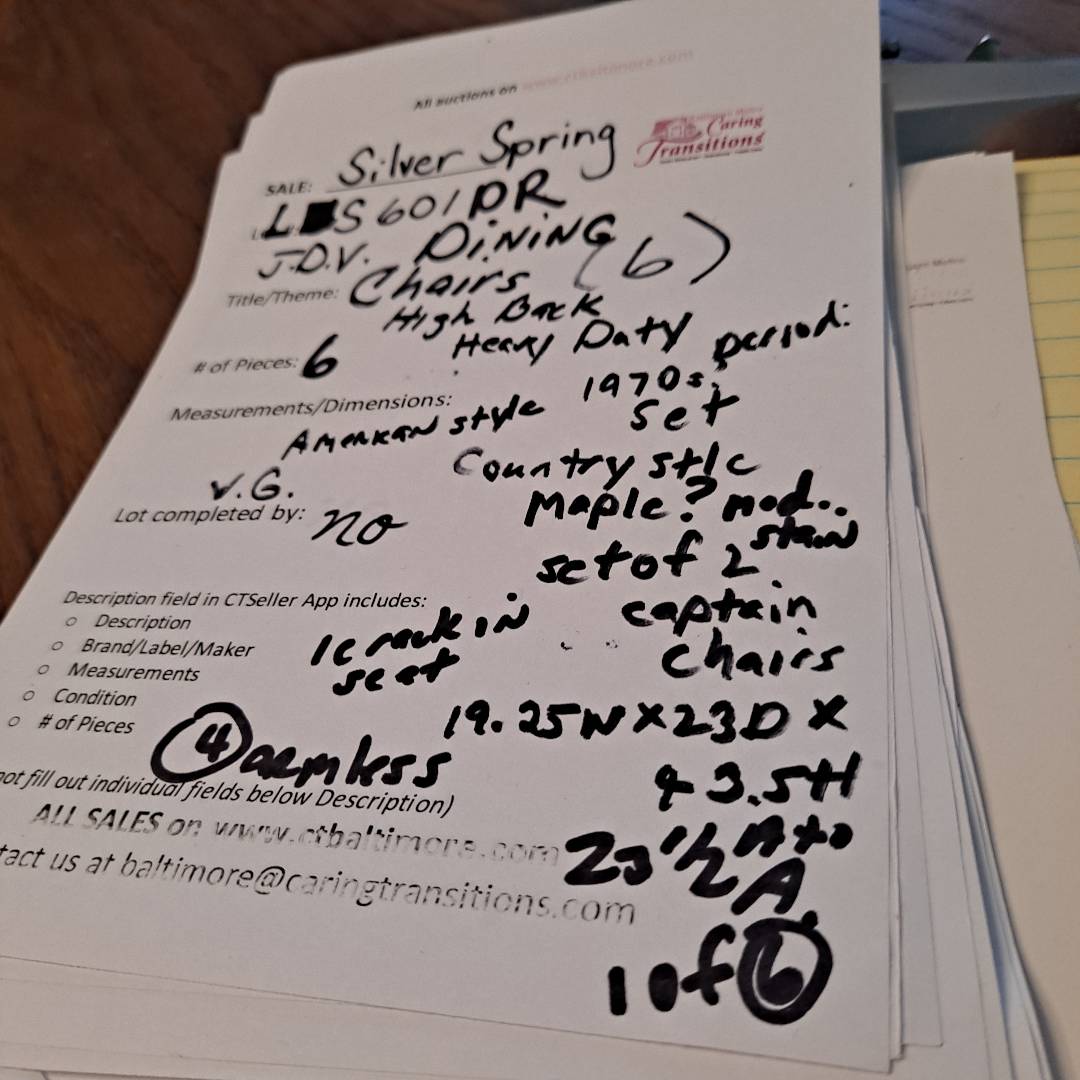 All auctions on www.ctbaltimore.com
Caring
Transitions
SALE: Silver Spring
L S601DR
J.D.V. DiNiNG
Title/Theme: Chairs (6)
High Back
# of Pieces: 6 Heavy Duty period:
Measurements/Dimensions: 1970s;
American style set
V.G. Country stlc
Lot completed by: no Maple? mod..
stain
set of 2
Description field in CTSeller App includes: captain
○ Description 1 crack iN chairs
○ Brand/Label/Maker seat
○ Measurements
○ Condition 19.25W X 23D X
○ # of Pieces
④ armless 43.5H
not fill out individual fields below Description)
ALL SALES on www.ctbaltimore.com 23 1/2 A to
tact us at baltimore@caringtransitions.com A.
1 of ⑥